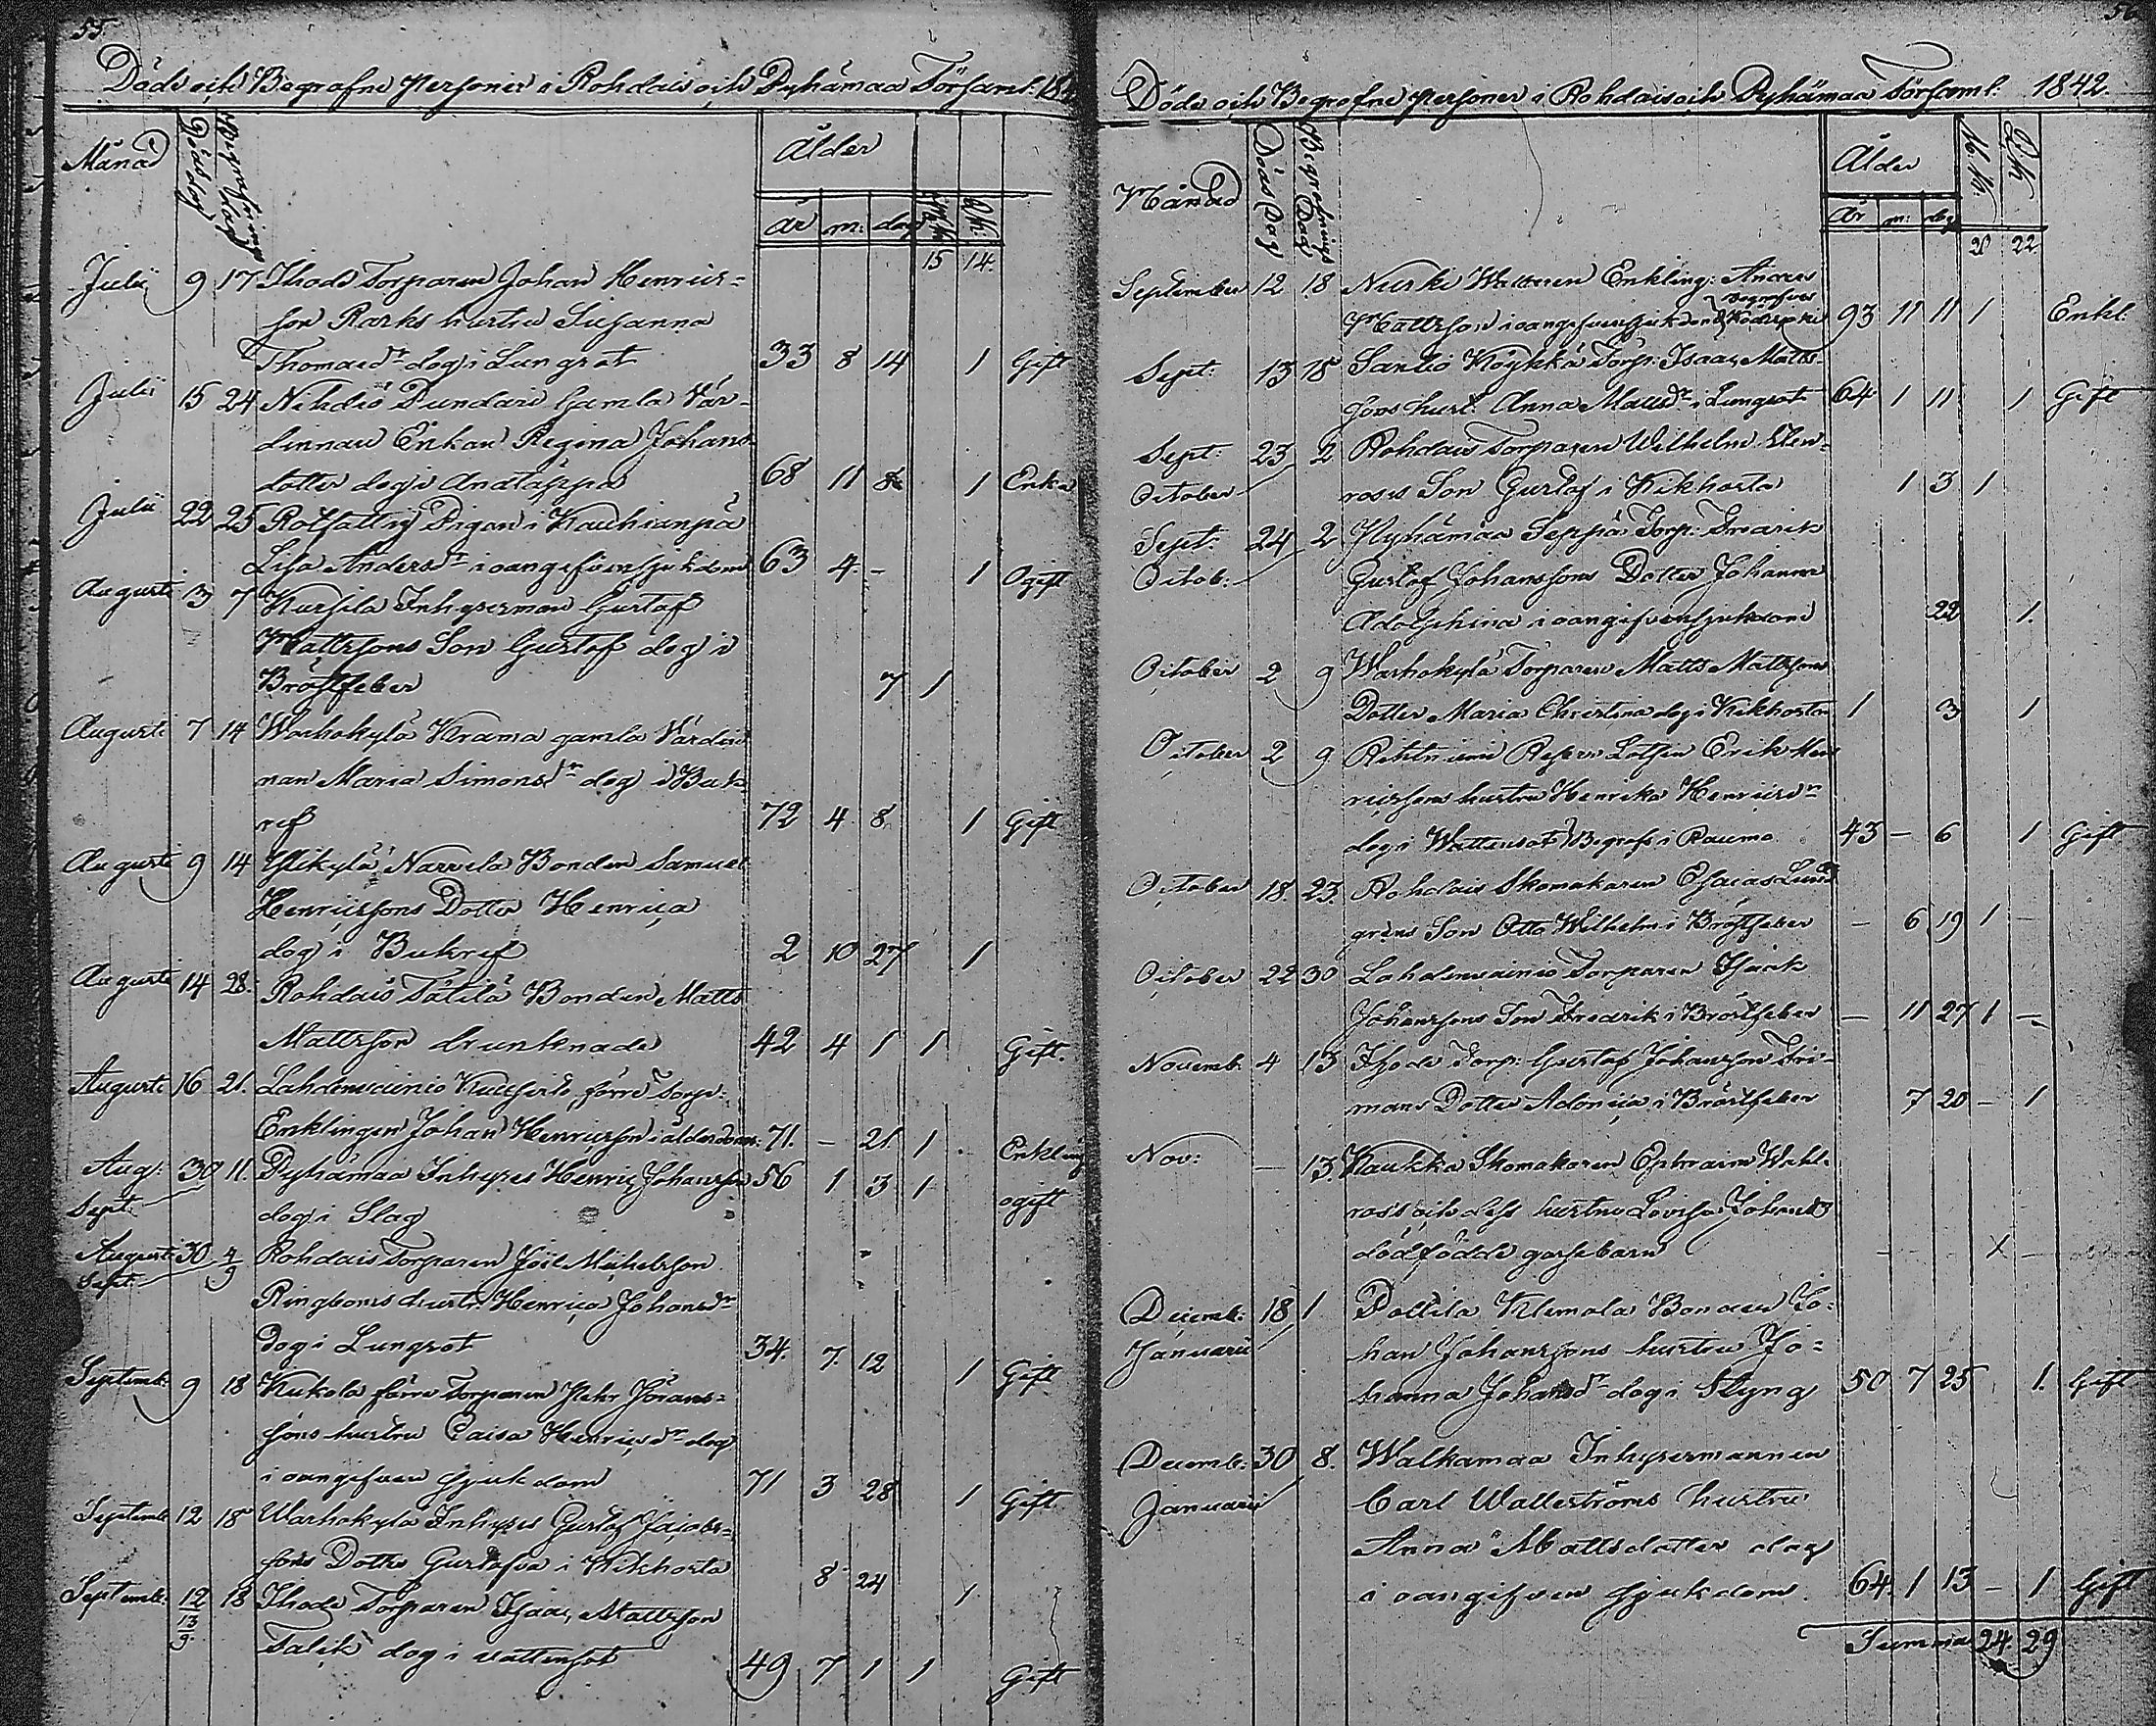 55.
Döde och Begrafne Personer i Rohdais och Pyhämaa Församl: 184
Månad Döds dag Begrafnings dag Ålder
år m: dag Mk: Qk:
15 14.
Julii 9 17 Ihode Torparen Johan Henrics=
son Rarks hustru Susanna
Thomasdr dog i Lungsot 33 8 14 1 Gift
Julii 15 24 Nihdiö Pundari Gamla Vär-
dinnan Enkan Regina Johans
dotter dog i Andtäppa 68 11 8 1 Enka
Julii 22 25 Rotfattig Pigan i Kauhianpä
Lisa Andersdr i oangifven sjukdom 63 4 - 1 Ogift
Augusti 3 7 Kursila Inhysesman Gustaf
Mattssons Son Gustaf dog i
Bröstfeber 7 1
Augusti 7 14 Warhokylä Krama gamla Värdin
nan Maria Simonsdr dog i Buk
ref 72 4 8 1 Gift
Augusti 9 14 Ylikylä Narvila Bonden Samuel
Henricssons Dotter Henrica
dog i Bukref 2 10 27 1
Augusti 14 28. Rohdais Tätilä Bonden Matts
Mattsson drunknade 42 4 1 1 Gift.
Augusti 16 21. Lahdenvainio förre Torp:
Enklingen Johan Henricsson i ålderdom: 71. - 21 1 Enkling
Aug: 30 11. Pyhämaa Inhyses Henric Johansson 56 1 3 1 ogift
Sept: dog i Slag
Augusti 30 4/9 Rohdais Torparen Joel Michelsson
Sept: Ringboms hustr. Henrica Johansdr
Dog i Lungsot 34. 7. 12 1 Gift
Septemb: 9 18 Kukola förre Torparen Pehr Jörans=
sons hustru Caisa Henricsdr dog
i oangifven sjukdom 71 3 28 1 Gift
Septemb 12 18 Warhokyla Inhyses Gustaf Jacobs=
sons Dotter Gustafva i Kikhosta 8 24 1
Septemb: 12 18 Ihode Torparen Isaac Mattsson
13/9 Talik dog i vattensot 49 7 1 1 Gift
56
Döde och Begrafne Personer i Rohdais och Pyhämaa Församl: 1842.
Månad Döds Dag Begrafnings Dag Ålder Mk. Qk
År m: dag
20 22
September 12 18 Nurki Walteren Enkling: Anders
Mattsson i oangifven sjukdom begrafves 93 11 11 1 Enkl.
Sept: 13 18 Santio Köykkä Torp: Isaac Matts-
sons hust: Anna Mattsdr i Lungsot 64 1 11 1 Gift
Sept: 23 2 Rohdais Torparen Wilhelm Elen-
October roses Son Gustaf i Kikhosta 1 3 1
Sept: 24 2 Pyhämaa Seppä Torp: Fredrik
Octob: Gustaf Johanssons Dotter Johanna
Adolphina i oangifven sjukdom 22 1.
October 2 9 Warhokylä Torparen Matts Mattssons
Dotter Maria Christina dog i Kikhosta 1 3 1
October 2 9. Rihtniemi Reserv Lotsen Erik Hen
ricssons hustru Henrika Henricsdr
dog i Wattensot Begrafs i Raumo. 43 - 6 1 Gift
October 18. 23. Rohdais Skomakaren Esaias Lund
grens Son Otto Wilhelm i Bröstfeber - 6 19 1 -
October 22 30 Lahdenvainio Torparen Isack
Johanssons Son Fredrik i Bröstfeber - 11 27 1 -
Novemb: 4 13 Ihode Torp: Gustaf Johansson Fri-
mans Dotter Adonica i Bröstfeber 7 20 - 1
Nov: - 13. Kaukka Skomakaren Ephraim Wahl-
ross och dess hustru Lovisa Johansdr
dödfödde gossebarn - - - X -
Decemb: 18 1 Pattila Klemola Bonden Jo-
Januarii han Johanssons hustru Jo=
hanna Johansdr dog i Styng 50 7 25 1. Gift
Decemb: 30 8. Walkamaa Inhysesmannen
Januarii Carl Walleströms hustru
Anna Mattsdotter dog
i oangifven sjukdom. 64. 1 13 - 1 Gift
Summa 24. 29